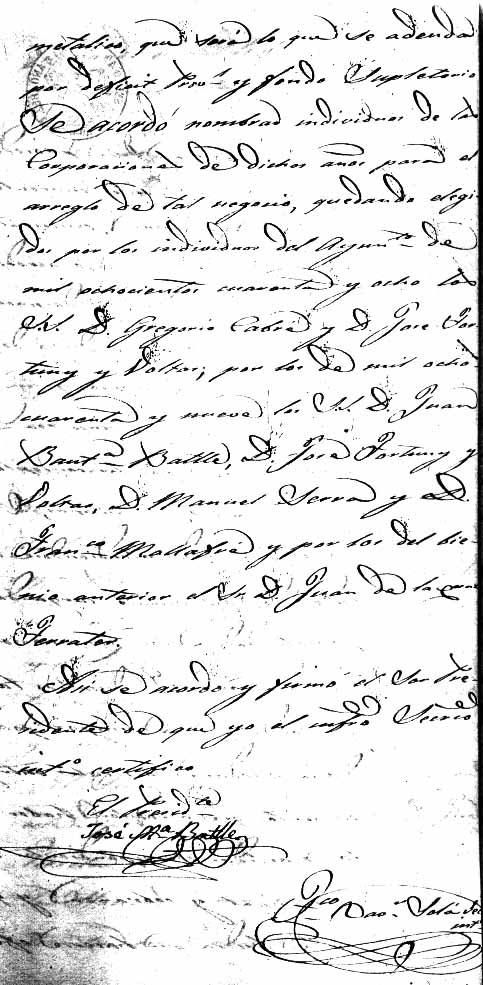 metalico, que será lo que se adeuda
por deficit Prov.l y fondo Supletorio
Se acordó nombrar individuos de las
Corporaciones de dichos años para el
arreglo de tal negocio, quedando elegi-
dos por los individuos del Ayun.to de
mil ochocientos cuarenta y ocho los
SS. D. Gregorio Cabré y D. José For-
tuny y Voltas; por los de mil ocho.s
cuarenta y nueve los SS. D. Juan
Baut.a Batlle, D. José Fortuny y
Voltas, D. Manuel Serra y D.
Fran.co Mallafré y por los del bie-
nio anterior el Sr. D. Juan de la Cruz
Ferrater.
Asi se acordo y firmó el Sor Pre-
sidente de que yo el infro Secrio
int.o certifico
El Presid.te
José M.a Batlle
Fco Solá Sec
int.o